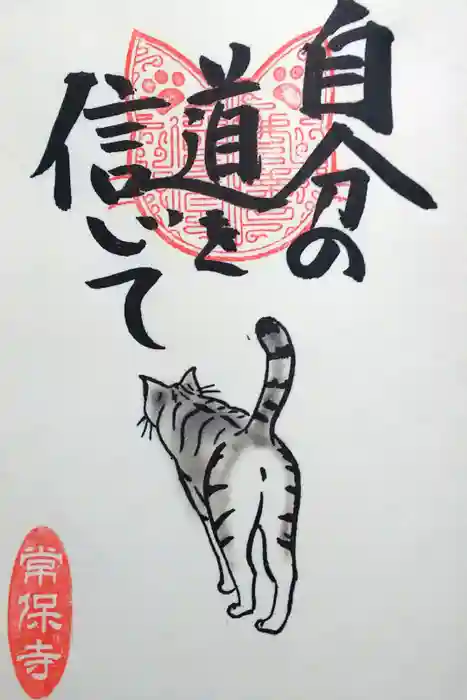 自分の
道を
信いて
常保寺